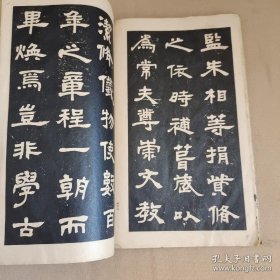 監朱相等捐貲脩
之依時補葺歲以
為常夫尊崇文教
潔脩儀物使數百
年之章程一朝而
畢煥焉豈非學古
孔夫子旧书网